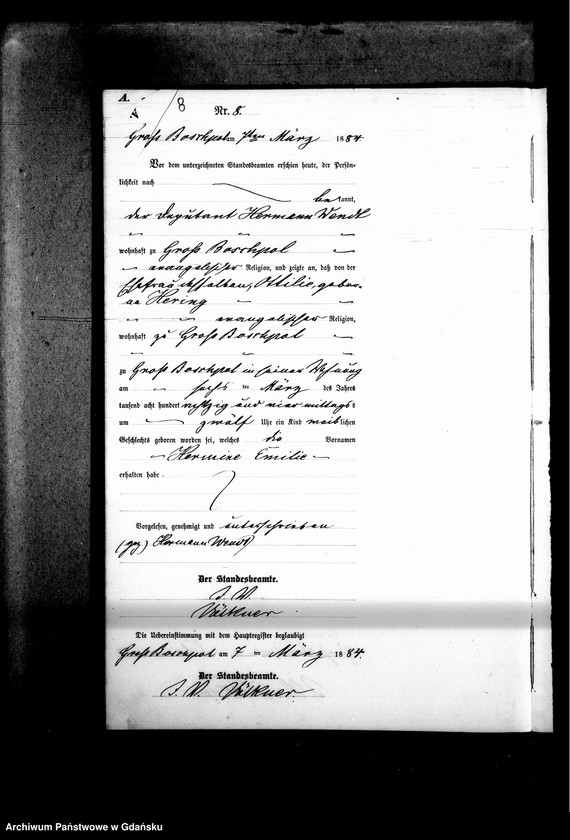 A.
8
Nr. 8.
Groß Boschpol am 7ten März 1884
Vor dem unterzeichneten Standesbeamten erschien heute, der Persön-
lichkeit nach
bekannt,
der Deputant Hermann Wendt
wohnhaft zu Groß Boschpol
evangelischer Religion, und zeigte an, daß von der
Ehefrau desselben, Ottilie, gebor-
ne Hering
evangelischer Religion,
wohnhaft zu Groß Boschpol
zu Groß Boschpol in seiner Wohnung
am sechs ten März des Jahres
tausend acht hundert achtzig und vier mittags
um zwölf Uhr ein Kind weiblichen
Geschlechts geboren worden sei, welches die Vornamen
Hermine Emilie
erhalten habe.
Vorgelesen, genehmigt und unterschrieben
(gez) Hermann Wendt
Der Standesbeamte.
J. V.
Völkner
Die Uebereinstimmung mit dem Hauptregister beglaubigt
Groß Boschpol am 7 ten März 1884.
Der Standesbeamte.
J. V. Völkner
Archiwum Państwowe w Gdańsku